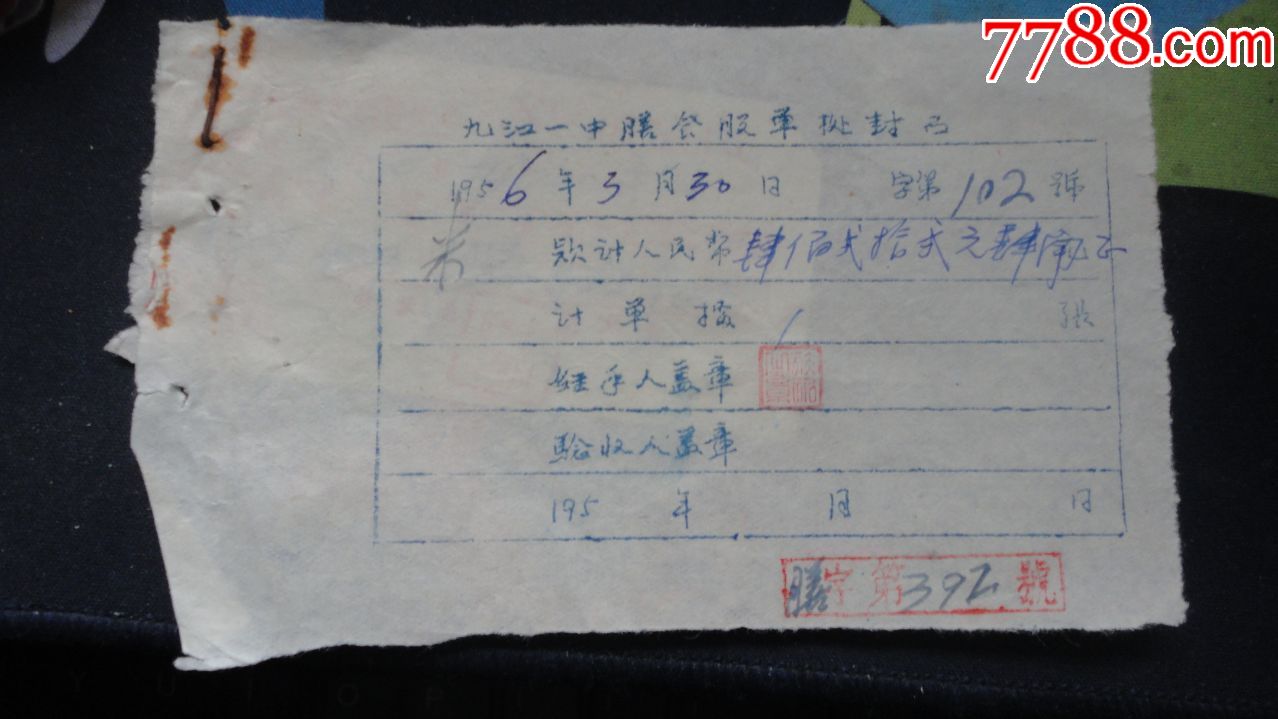 7788.com
九江一中膳食股单据封面
1956年3月30日 字第102號
米 款计人民币肆佰弍拾弍元肆角正
计单据 1 张
经手人盖章
驗收人盖章
195 年 月 日
膳字第392號